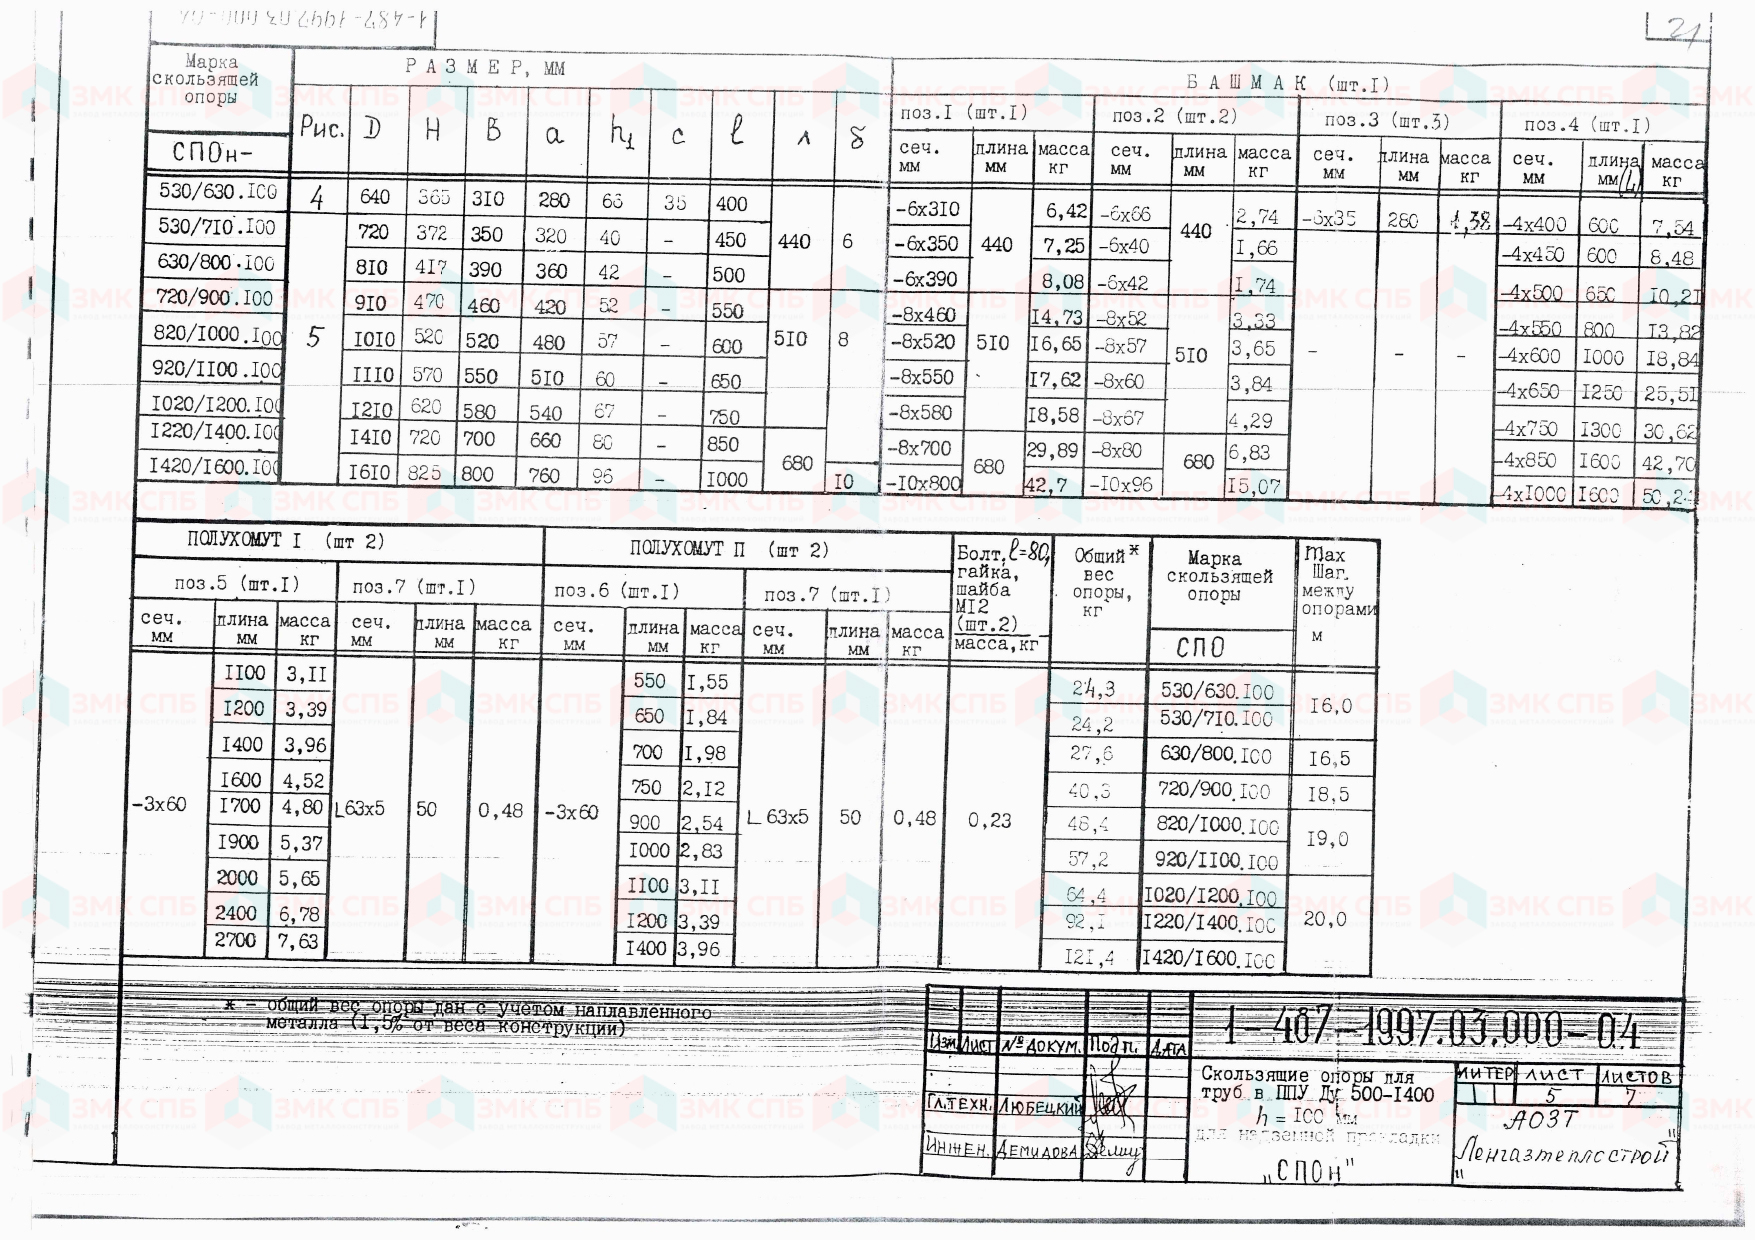 1-487-1997.03.000-04
21
Марка скользящей опоры
РАЗМЕР, ММ
БАШМАК (шт.I)
СПОн-
Рис. D H B a h₁ c l Л δ
поз.I (шт.I) поз.2 (шт.2) поз.3 (шт.3) поз.4 (шт.I)
сеч. мм длина мм масса кг сеч. мм длина мм масса кг сеч. мм длина мм масса кг сеч. мм длина мм (L) масса кг
530/630.I00 4 640 365 3I0 280 66 35 400 440 6 -6х3I0 440 6,42 -6х66 440 2,74 -6х35 280 1,38 -4х400 600 7,54
530/7I0.I00 5 720 372 350 320 40 - 450 -6х350 7,25 -6х40 I,66 - - - -4х450 600 8,48
630/800.I00 8I0 4I7 390 360 42 - 500 -6х390 8,08 -6х42 I,74 -4х500 650 I0,2I
720/900.I00 9I0 470 460 420 52 - 550 5I0 8 -8х460 5I0 I4,73 -8х52 5I0 3,33 -4х550 800 I3,82
820/I000.I00 I0I0 520 520 480 57 - 600 -8х520 I6,65 -8х57 3,65 -4х600 I000 I8,84
920/II00.I00 III0 570 550 5I0 60 - 650 -8х550 I7,62 -8х60 3,84 -4х650 I250 25,5I
I020/I200.I00 I2I0 620 580 540 67 - 750 -8х580 I8,58 -8х67 4,29 -4х750 I300 30,62
I220/I400.I00 I4I0 720 700 660 80 - 850 680 -8х700 680 29,89 -8х80 680 6,83 -4х850 I600 42,70
I420/I600.I00 I6I0 825 800 760 96 - I000 I0 -I0х800 42,7 -I0х96 I5,07 -4хI000 I600
ПОЛУХОМУТ I (шт 2)
ПОЛУХОМУТ П (шт 2)
Болт, l=80, гайка, шайба МI2 (шт.2) масса,кг
Общий* вес опоры, кг
Марка скользящей опоры
СПО
max Шаг между опорами м
поз.5 (шт.I) поз.7 (шт.I) поз.6 (шт.I) поз.7 (шт.I)
сеч. мм длина мм масса кг сеч. мм длина мм масса кг сеч. мм длина мм масса кг сеч. мм длина мм масса кг
-3х60 II00 3,II L63х5 50 0,48 -3х60 550 I,55 L63х5 50 0,48 0,23 24,3 530/630.I00 I6,0
I200 3,39 650 I,84 24,2 530/7I0.I00
I400 3,96 700 I,98 27,6 630/800.I00 I6,5
I600 4,52 750 2,I2 40,3 720/900.I00 I8,5
I700 4,80 900 2,54 48,4 820/I000.I00 I9,0
I900 5,37 I000 2,83 57,2 920/II00.I00
2000 5,65 II00 3,II 64,4 I020/I200.I00 20,0
2400 6,78 I200 3,39 92,I I220/I400.I00
2700 7,63 I400 3,96 I2I,4 I420/I600.I00
* - общий вес опоры дан с учетом наплавленного
металла (I,5% от веса конструкции)
1-487-1997.03.000-04
Изм Лист № докум. Подп. Дата
Гл.техн. Любецкий
Инжен. Демидова
Скользящие опоры для
труб в ППУ Ду 500-I400
h = I00 мм
для надземной прокладки
„СПОн"
Литер Лист Листов
5 7
АОЗТ
„Ленгазтеплострой"
ЗМК СПБ